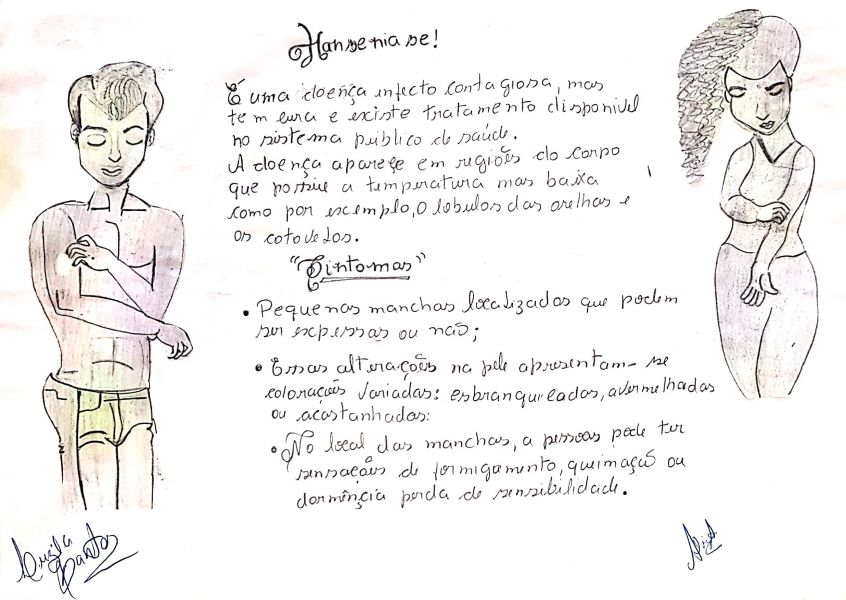 Hanseniase!
É uma doença infecto contagiosa, mas
tem cura e existe tratamento disponivel
no sistema público de saúde.
A doença aparece em regiões do corpo
que possue a temperatura mas baixa
como por excemplo, o lobulos das orelhas e
os cotovelos.
"Sintomas"
• Pequenas manchas localizados que podem
ser expessas ou não;
• Essas alterações na pele apresentam-se
colorações variadas: esbranqueadas, avermelhadas
ou acastanhadas:
• No local das manchas, a pessoas pode ter
sensações de formigamento, queimação ou
dormência perda de sensibilidade.
Santos